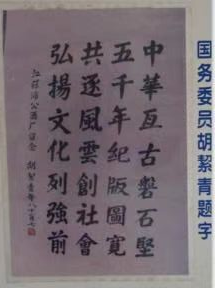 国务委员胡絜青题字
中華亙古磐石堅
五千年紀版圖寬
共逐風雲創社會
弘揚文化列強前
酒厂留念 胡絜青年八十有七